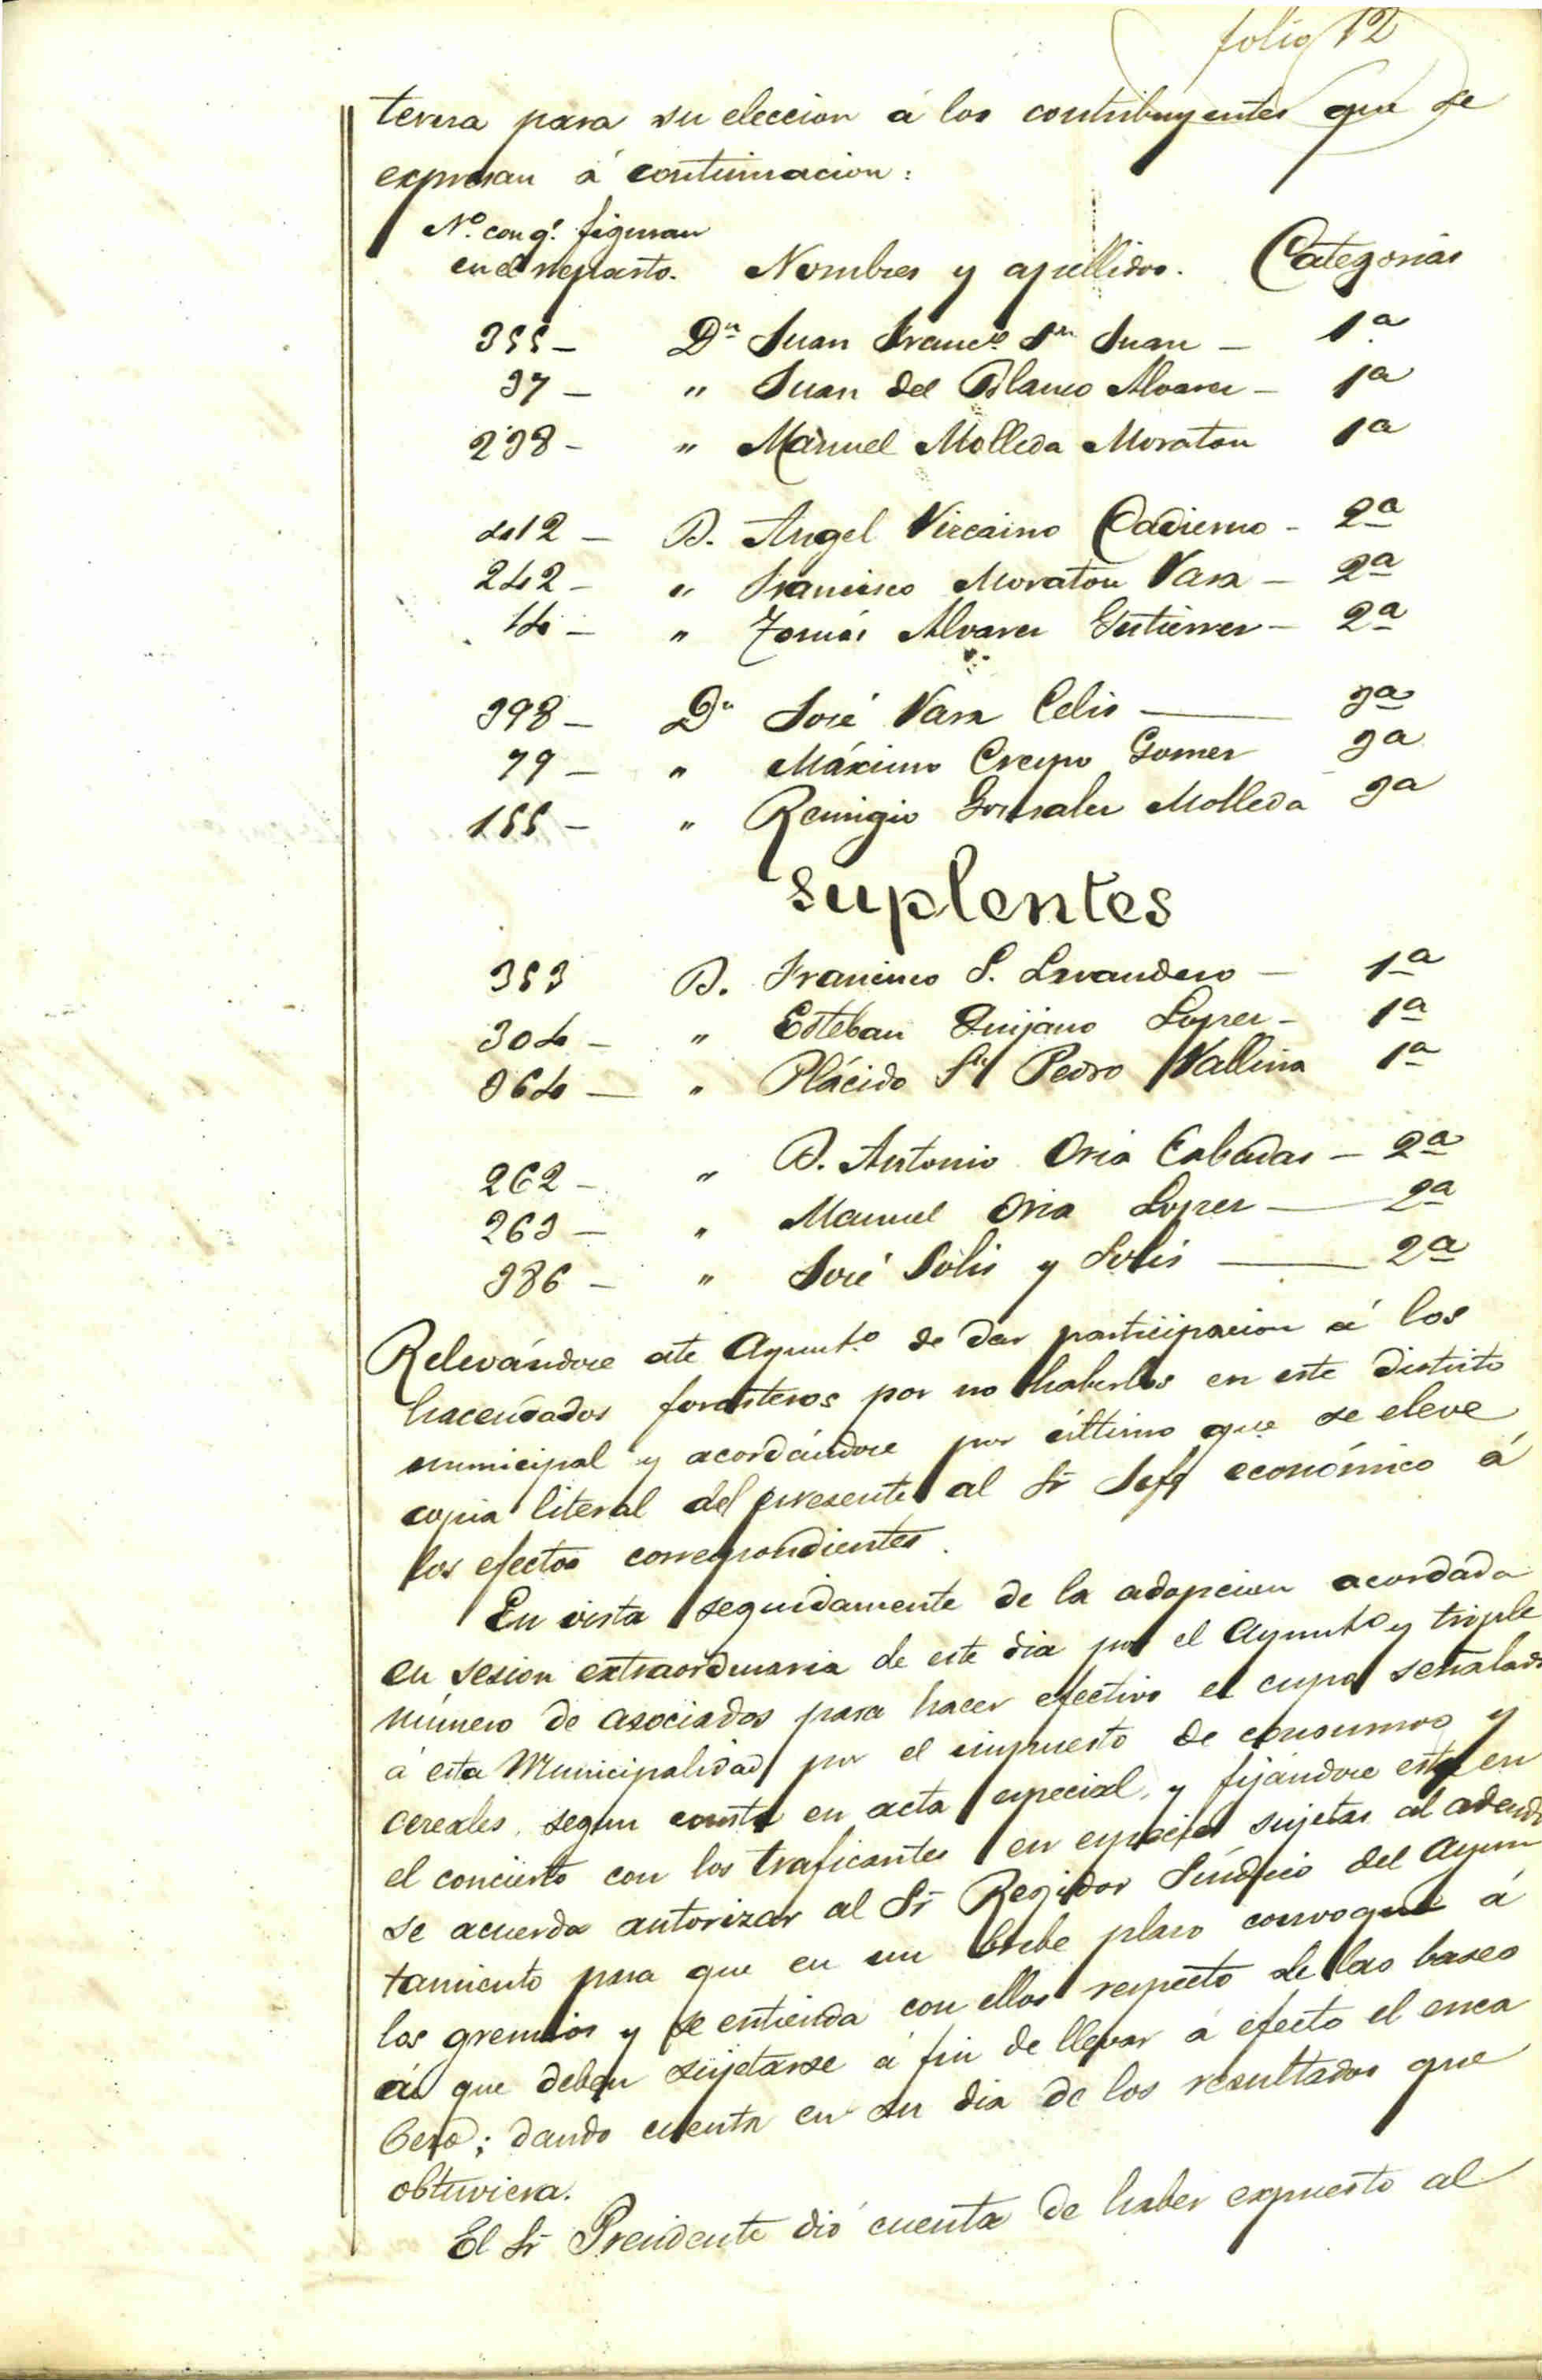 folio 12
terna para su eleccion á los contribuyentes que se
expresan á continuacion:
Nº. con q.e figuran
en el reparto. Nombres y apellidos. Categorias
355 - Dn Juan Francº Sn Juan - 1ª
37 - " Juan del Blanco Alvarez - 1ª
238 - " Manuel Molleda Moraton 1ª
412 - D. Angel Vizcaino Cadierno - 2ª
242 - " Francisco Moraton Vara - 2ª
14 - " Tomás Alvarez Gutierrez - 2ª
398 - Dn José Vara Celis - 3ª
79 - " Máximo Crespo Gomez 3ª
155 - " Remigio Gonzalez Molleda 3ª
Suplentes
353 D. Francisco S. Lavandero - 1ª
304 - " Esteban Quijano Lopez - 1ª
364 - " Plácido Sn Pedro Vallina 1ª
262 - " D. Antonio Oria Cabadas - 2ª
263 - " Manuel Oria Lopez - 2ª
386 - " José Solis y Solis - 2ª
Relevándose este Ayuntº de dar participacion á los
hacendados forasteros por no haberlos en este distrito
municipal y acordándose por último que se eleve
copia literal del presente al Sr Jefe económico á
los efectos correspondientes.
En vista seguidamente de la adopcion acordada
en sesion extraordinaria de este dia por el Ayuntº y triple
número de asociados para hacer efectivo el cupo señalado
á esta Municipalidad por el impuesto de consumos y
cereales, segun consta en acta especial, y fijándose este en
el concierto con los traficantes en especies sujetas al adeudo
se acuerda autorizar al Sr Regidor Síndico del Ayun
tamiento para que en un brebe plazo convoque á
los gremios y se entienda con ellos respecto de las bases
á que deben sujetarse á fin de llevar á efecto el enca
bezo; dando cuenta en su dia de los resultados que
obtuviera.
El Sr Presidente dió cuenta de haber expuesto al